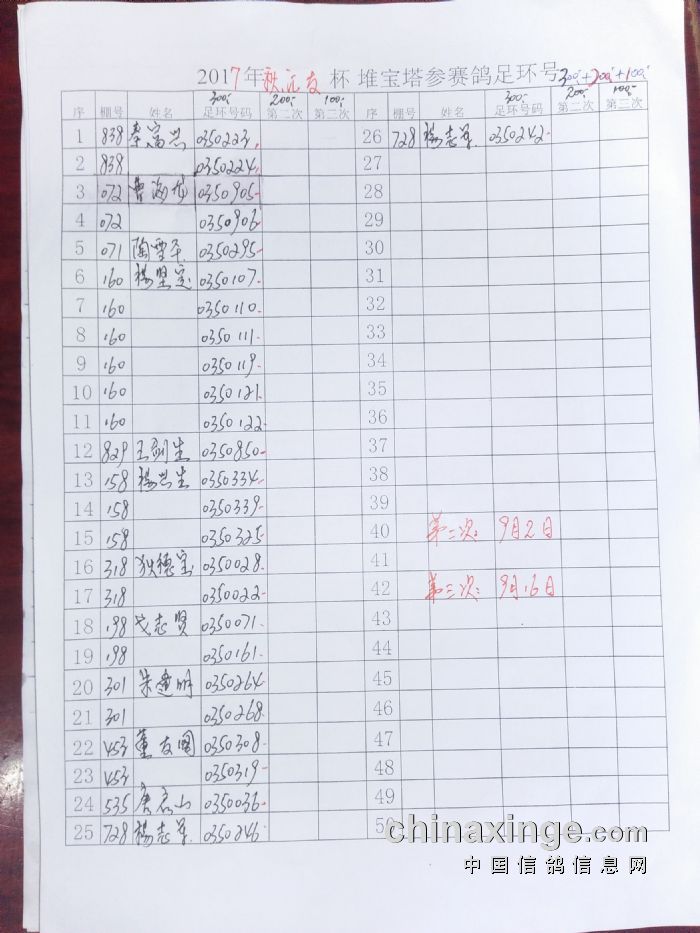 2017年秋沅友杯 堆宝塔参赛鸽足环号 300;+200;+100;
300; 200; 100; 300; 200; 100;
序 棚号 姓名 足环号码 第二次 第三次 序 棚号 姓名 足环号码 第二次 第三次
1 838 0350223 26 728 杨志军 0350242
2 838 0350224 27
3 072 曹海龙 0350905 28
4 072 0350906 29
5 071 陶雪平 0350295 30
6 160 杨坚定 0350107 31
7 160 0350110 32
8 160 0350111 33
9 160 0350119 34
10 160 0350121 35
11 160 0350122 36
12 829 王剑生 0350850 37
13 158 杨兴生 0350334 38
14 158 0350339 39
15 158 0350325 40 第二次: 9月2日
16 318 狄德宝 0350028 41
17 318 0350022 42 第三次: 9月16日
18 198 戈志贤 0350071 43
19 198 0350161 44
20 301 朱建明 0350264 45
21 301 0350268 46
22 453 董友国 0350308 47
23 453 0350319 48
24 535 唐名山 0350036 49
25 728 杨志军 0350246 50
chinaxinge.com
中国信鸽信息网